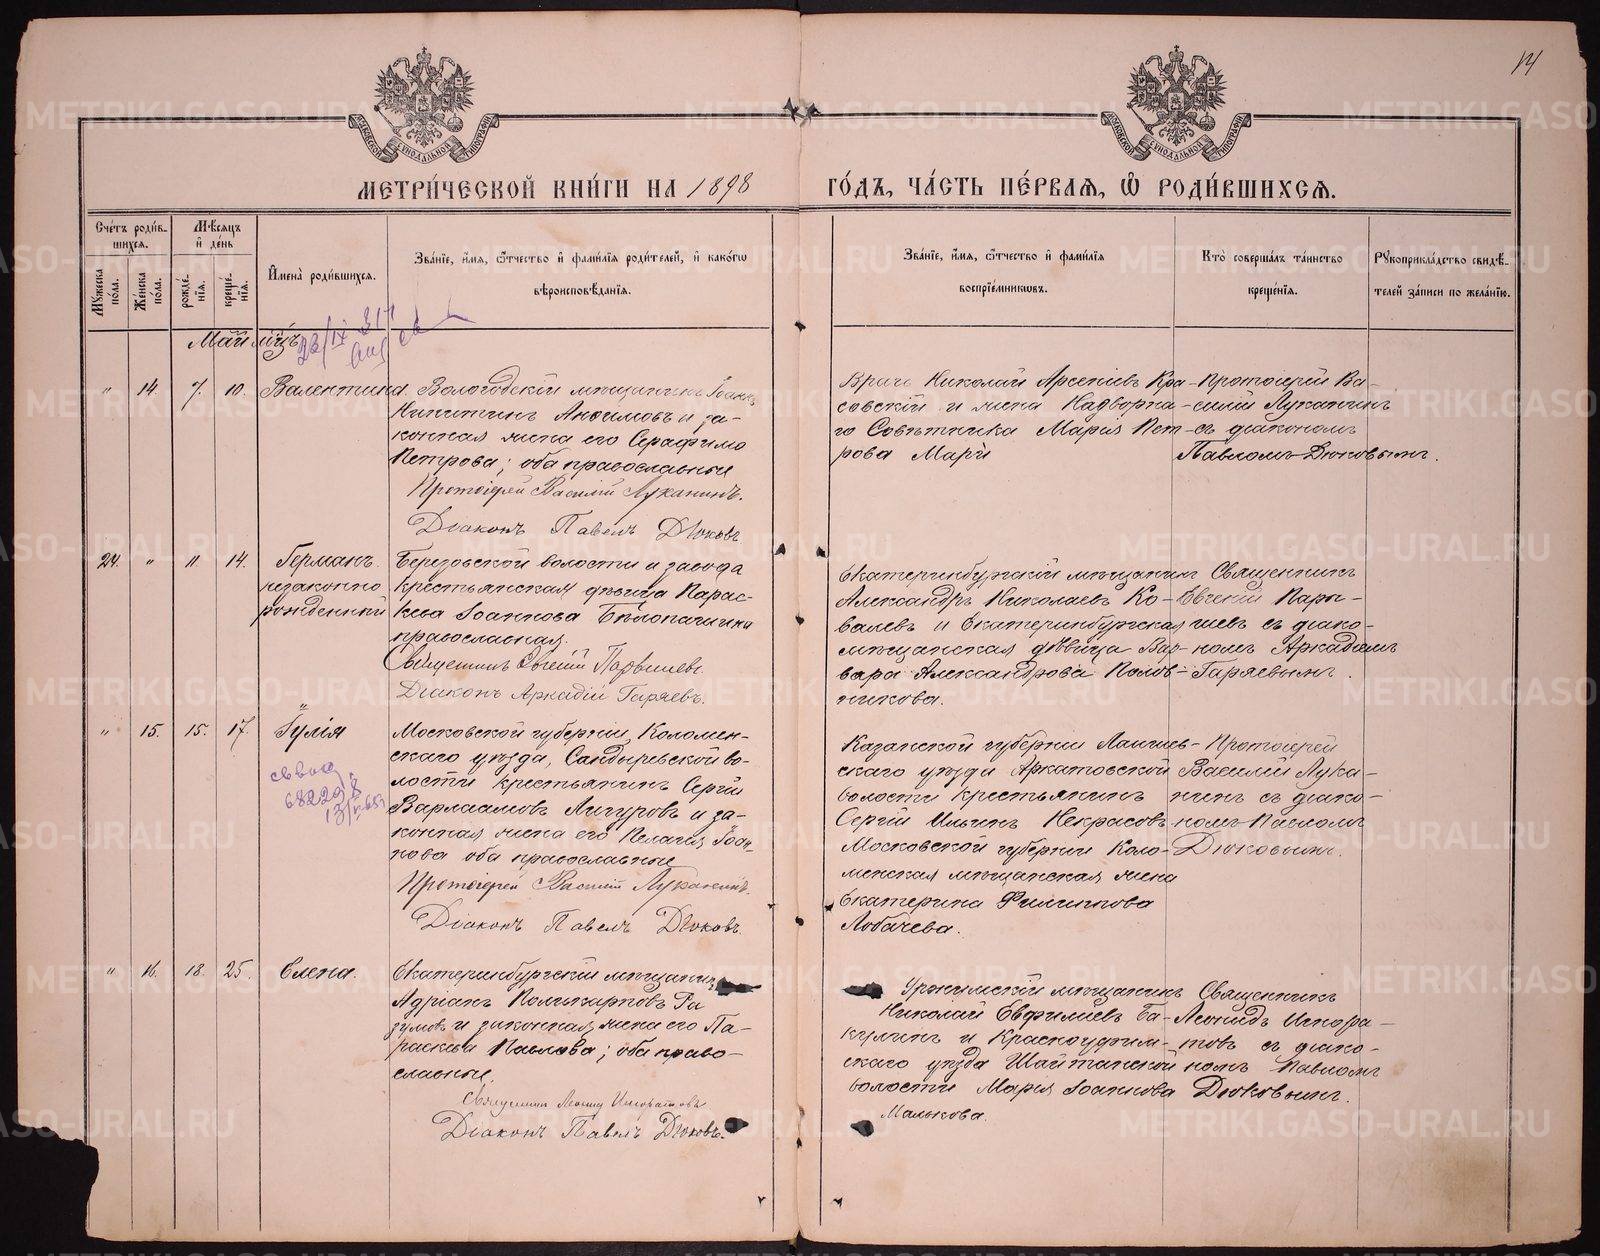 14
МЕТРИЧЕСКОЙ КНИГИ НА 1898 ГОДЪ, ЧАСТЬ ПЕРВАЯ, Ѡ РОДИВШИХСЯ.
Счетъ родившихся.
Мужеска пола.
Женска пола.
Мѣсяцъ и день
рожденія.
крещенія.
Имена родившихся.
Званіе, имя, отчество и фамилія родителей, и какогѡ
вѣроисповѣданія.
Званіе, имя, отчество и фамилія
воспріемниковъ.
Кто совершалъ таинство
крещенія.
Рукоприкладство свидѣ-
телей записи по желанію.
Май мцъ
" 14. 7. 10. Валентина
Вологодскій мѣщанинъ Іоаннъ
Никитинъ Анѳимовъ и за-
конная жена его Серафима
Петрова; оба православные
Протоіерей Василій Луканинъ.
Діаконъ Павелъ Дюковъ
Врачъ Николай Арсеніевъ Кра-
совскій и жена Надворна-
го Совѣтника Марія Пет-
рова Мари
Протоіерей Ва-
силій Луканинъ
съ діакономъ
Павломъ Дюковымъ.
24. " 11. 14. Германъ
незаконно
рожденный
Березовской волости и завода
крестьянская дѣвица Парас-
кева Іоаннова Бѣлопашина
православная.
Священникъ Евгеній Парышевъ.
Діаконъ Аркадій Гаряевъ.
Екатеринбургскій мѣщанинъ
Александръ Николаевъ Ко-
валевъ и Екатеринбургская
мѣщанская дѣвица Вар-
вара Александрова Полов-
никова.
Священникъ
Евгеній Пары-
шевъ съ діако-
номъ Аркадіемъ
Гаряевымъ.
" 15. 15. 17. Іулія
Московской губерніи, Коломен-
скаго уѣзда, Сандыревской во-
лости крестьянинъ Сергій
Варлаамовъ Лигуровъ и за-
конная жена его Пелагія Іоан-
нова оба православные
Протоіерей Василій Луканинъ.
Діаконъ Павелъ Дюковъ.
Казанской губерніи Лаишев-
скаго уѣзда Аркатовской
волости крестьянинъ
Сергій Ильинъ Некрасовъ
Московской губерніи Коло-
менская мѣщанская жена
Екатерина Филиппова
Лобачева.
Протоіерей
Василій Лука-
нинъ съ діако-
номъ Павломъ
Дюковымъ.
" 16. 18. 25. Елена.
Екатеринбургскій мѣщанинъ
Адріанъ Поликарповъ Ра
зумовъ и законная жена его Па-
раскева Павлова; оба право-
славные.
Священникъ Леонидъ Игноратовъ
Діаконъ Павелъ Дюковъ.
Уржумскій мѣщанинъ
Николай Евфиміевъ Ба-
кулинъ и Красноуфим-
скаго уѣзда Шайтанской
волости Марія Іоаннова
Малькова.
Священникъ
Леонидъ Игнора-
товъ съ діако-
номъ Павломъ
Дюковымъ.